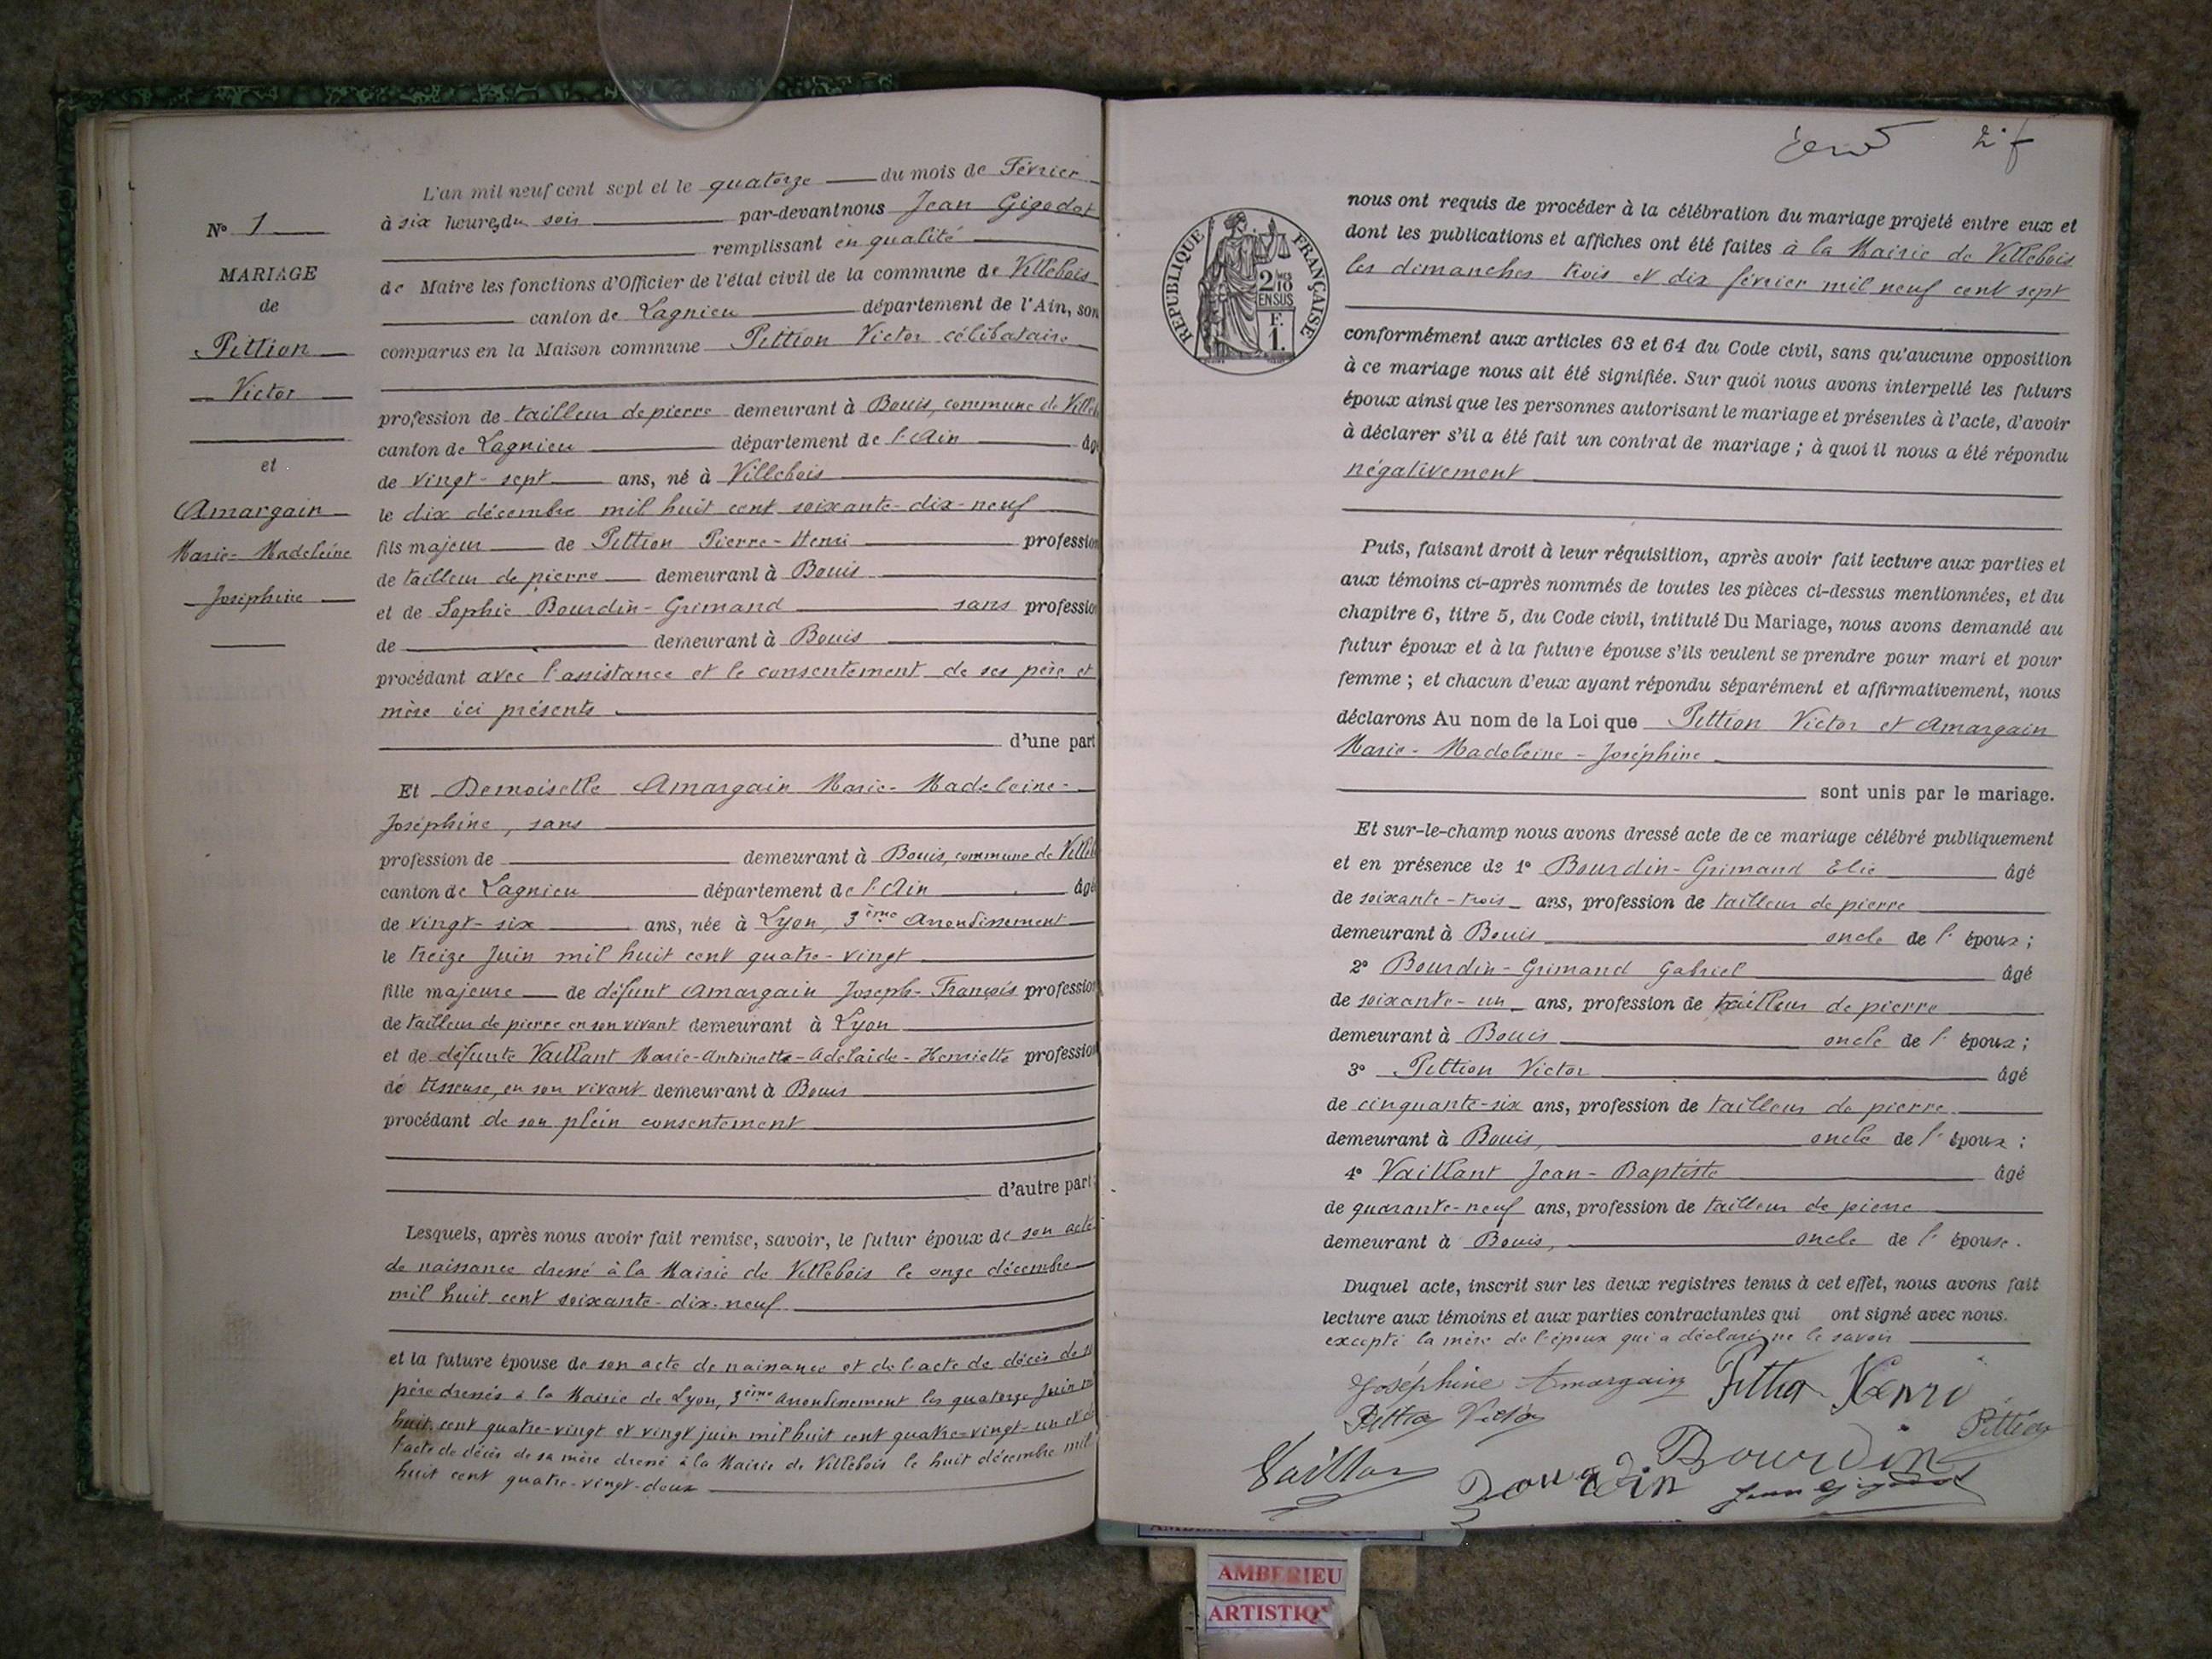 L'an mil neuf cent sept et le quatorze du mois de Février
à six heures du soir par-devant nous Jean Gigodot
remplissant en qualité
de Maire les fonctions d'Officier de l'état civil de la commune de Villebois
canton de Lagnieu département de l'Ain, son
comparus en la Maison commune Pittion Victor célibataire
profession de tailleur de pierre demeurant à Bouis, commune de Villeb
canton de Lagnieu département de l'Ain âgé
de vingt-sept ans, né à Villebois
le dix décembre mil huit cent soixante-dix-neuf
fils majeur de Pittion Pierre-Henri profession
de tailleur de pierre demeurant à Bouis
et de Sophie Bourdin-Grimand sans profession
de demeurant à Bouis
procédant avec l'assistance et le consentement de ses père et
mère ici présents
d'une part
Et Demoiselle Amargain Marie-Madeleine-
Joséphine, sans
profession de demeurant à Bouis, commune de Villeb
canton de Lagnieu département de l'Ain âgé
de vingt-six ans, née à Lyon, 3ème Arrondissement
le treize Juin mil huit cent quatre-vingt
fille majeure de défunt Amargain Joseph-François profession
de tailleur de pierre en son vivant demeurant à Lyon
et de défunte Vaillant Marie-Antoinette-Adélaïde-Henriette profession
de tisseuse, en son vivant demeurant à Bouis
procédant de son plein consentement
d'autre part;
Lesquels, après nous avoir fait remise, savoir, le futur époux de son acte
de naissance dressé à la Mairie de Villebois le onze décembre
mil huit cent soixante-dix-neuf
et la future épouse de son acte de naissance et de l'acte de décès de s
père dressés à la Mairie de Lyon, 3ème arrondissement les quatorze Juin mil
huit cent quatre-vingt et vingt juin mil huit cent quatre-vingt-un et de
l'acte de décès de sa mère dressé à la Mairie de Villebois le huit décembre mil
huit cent quatre-vingt-deux
N° 1
MARIAGE
de
Pittion
Victor
et
Amargain
Marie-Madeleine
Joséphine
2 f
RÉPUBLIQUE FRANÇAISE
2/10 MES
EN SUS
F.
1.
nous ont requis de procéder à la célébration du mariage projeté entre eux et
dont les publications et affiches ont été faites à la Mairie de Villebois
les dimanches trois et dix février mil neuf cent sept
conformément aux articles 63 et 64 du Code civil, sans qu'aucune opposition
à ce mariage nous ait été signifiée. Sur quoi nous avons interpellé les futurs
époux ainsi que les personnes autorisant le mariage et présentes à l'acte, d'avoir
à déclarer s'il a été fait un contrat de mariage ; à quoi il nous a été répondu
négativement
Puis, faisant droit à leur réquisition, après avoir fait lecture aux parties et
aux témoins ci-après nommés de toutes les pièces ci-dessus mentionnées, et du
chapitre 6, titre 5, du Code civil, intitulé Du Mariage, nous avons demandé au
futur époux et à la future épouse s'ils veulent se prendre pour mari et pour
femme ; et chacun d'eux ayant répondu séparément et affirmativement, nous
déclarons Au nom de la Loi que Pittion Victor et Amargain
Marie-Madeleine-Joséphine
sont unis par le mariage.
Et sur-le-champ nous avons dressé acte de ce mariage célébré publiquement
et en présence de 1° Bourdin-Grimand Elie âgé
de soixante-trois ans, profession de tailleur de pierre
demeurant à Bouis oncle de l'époux ;
2° Bourdin-Grimand Gabriel âgé
de soixante-un ans, profession de tailleur de pierre
demeurant à Bouis oncle de l'époux ;
3° Pittion Victor âgé
de cinquante-six ans, profession de tailleur de pierre
demeurant à Bouis, oncle de l'époux ;
4° Vaillant Jean-Baptiste âgé
de quarante-neuf ans, profession de tailleur de pierre
demeurant à Bouis, oncle de l'épouse.
Duquel acte, inscrit sur les deux registres tenus à cet effet, nous avons fait
lecture aux témoins et aux parties contractantes qui ont signé avec nous.
excepté la mère de l'époux qui a déclaré ne le savoir
Joséphine Amargain Pittion Henri
Pittion Victor Pittion
Vaillant Bourdin Bourdin
Jean Gigodot
AMBERIEU
ARTISTIQ